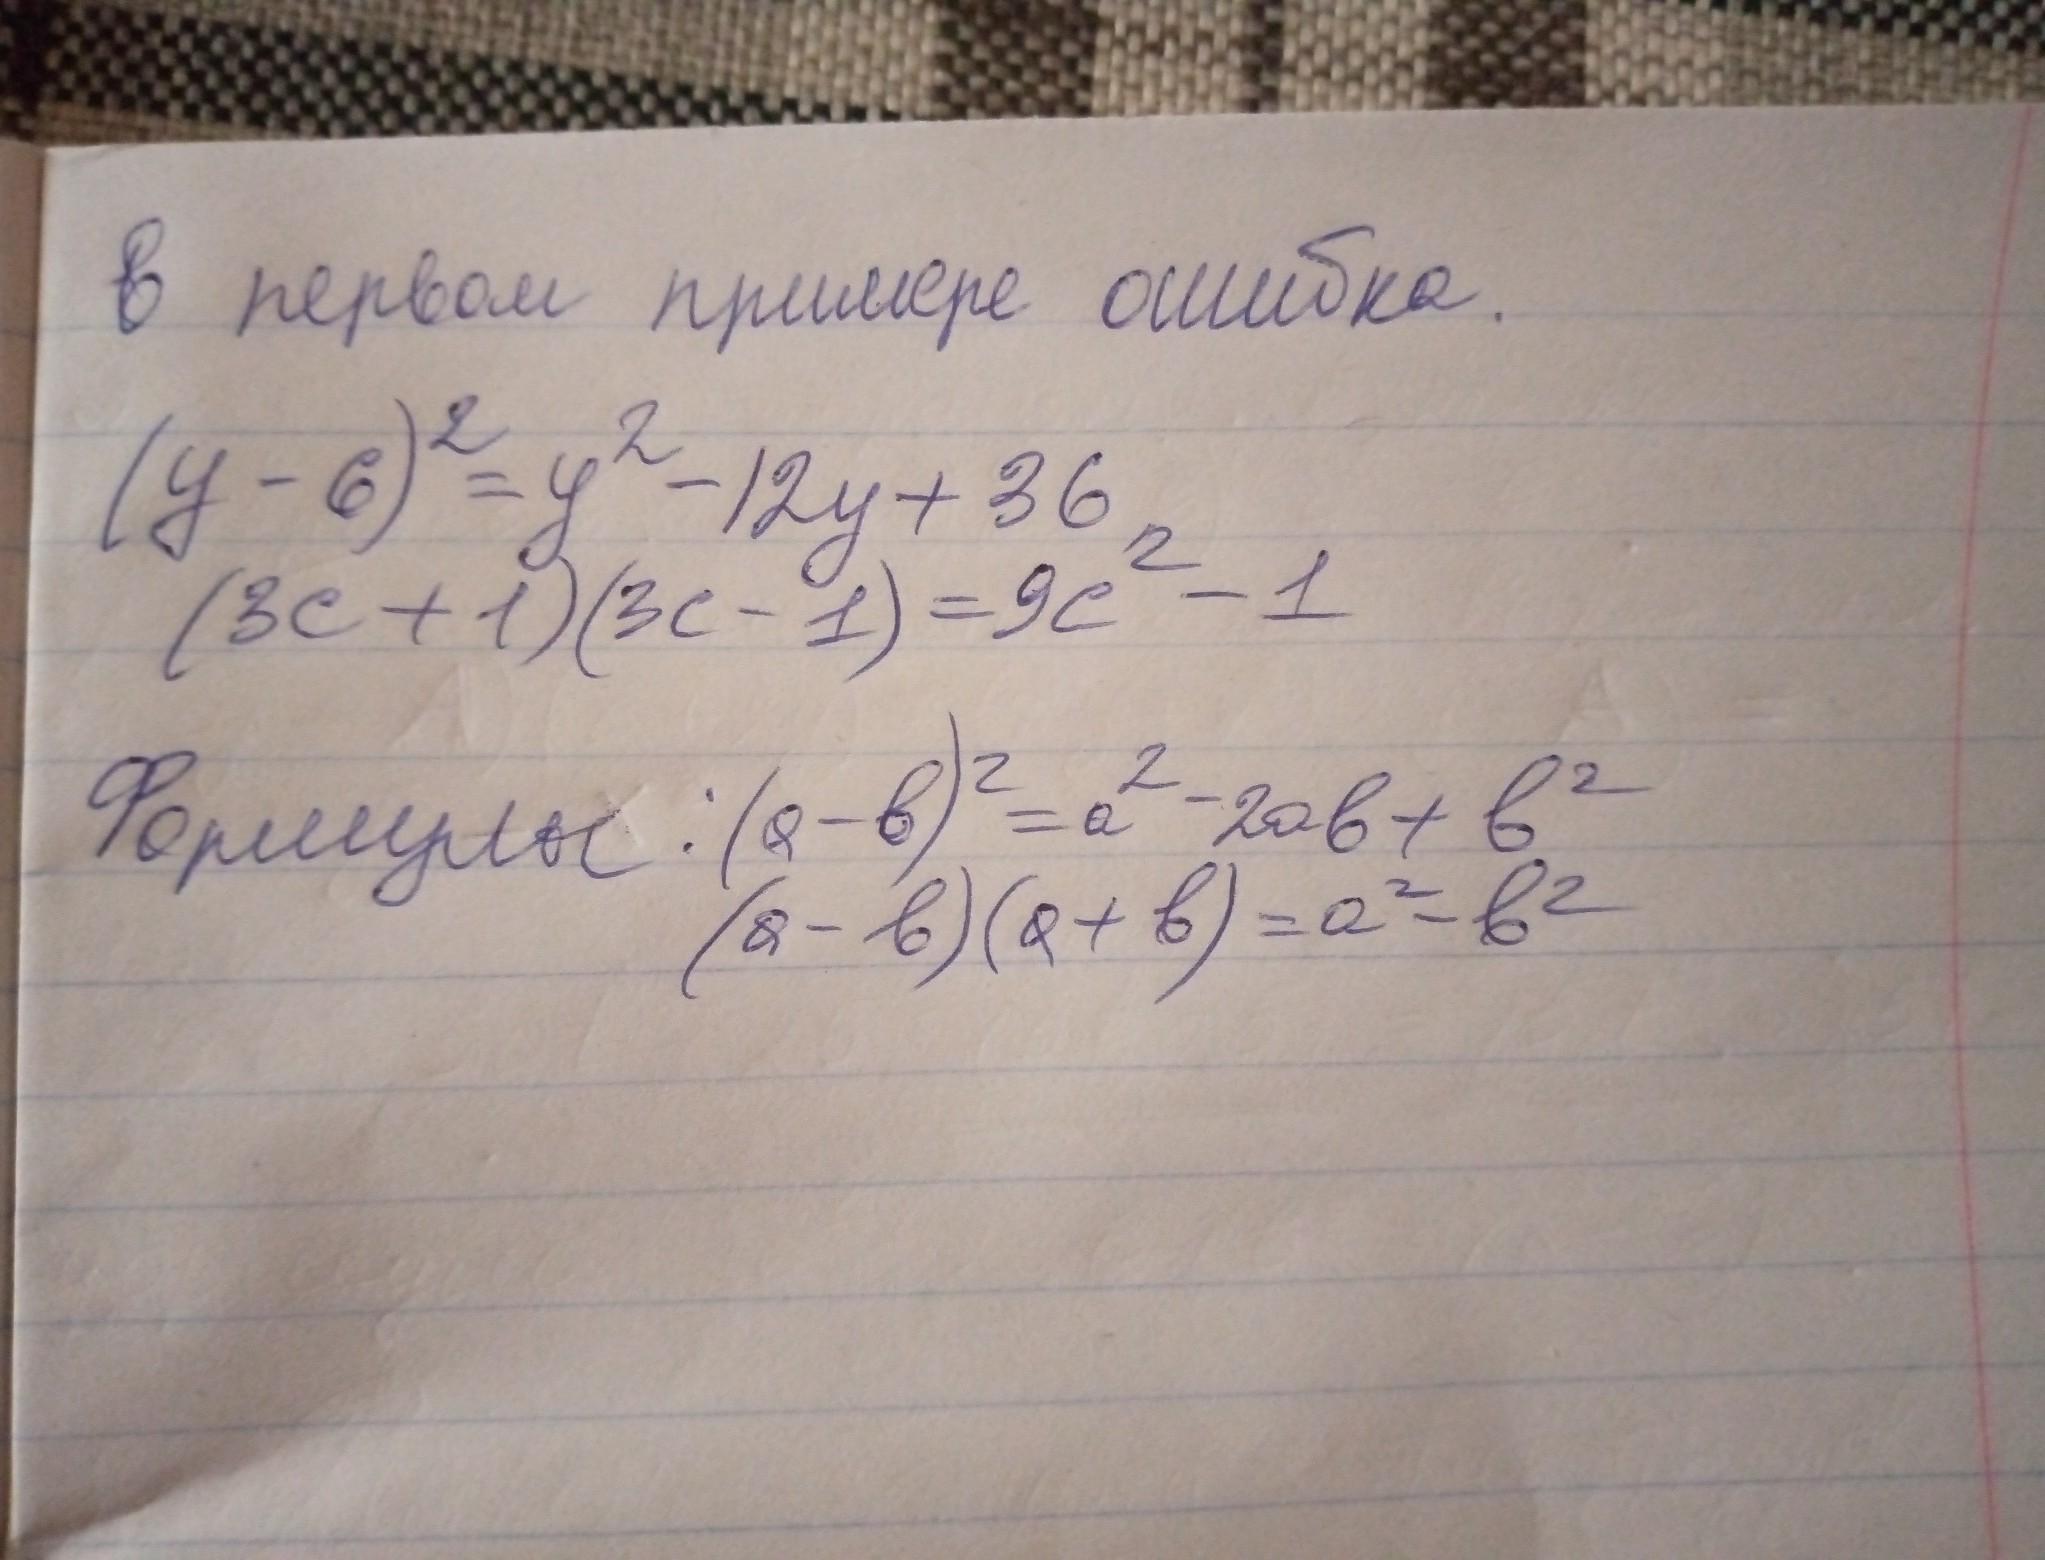 В первом примере ошибка.
(y - 6)² = y² - 12y + 36
(3c + 1)(3c - 1) = 9c² - 1
Формулы: (a - b)² = a² - 2ab + b²
(a - b)(a + b) = a² - b²